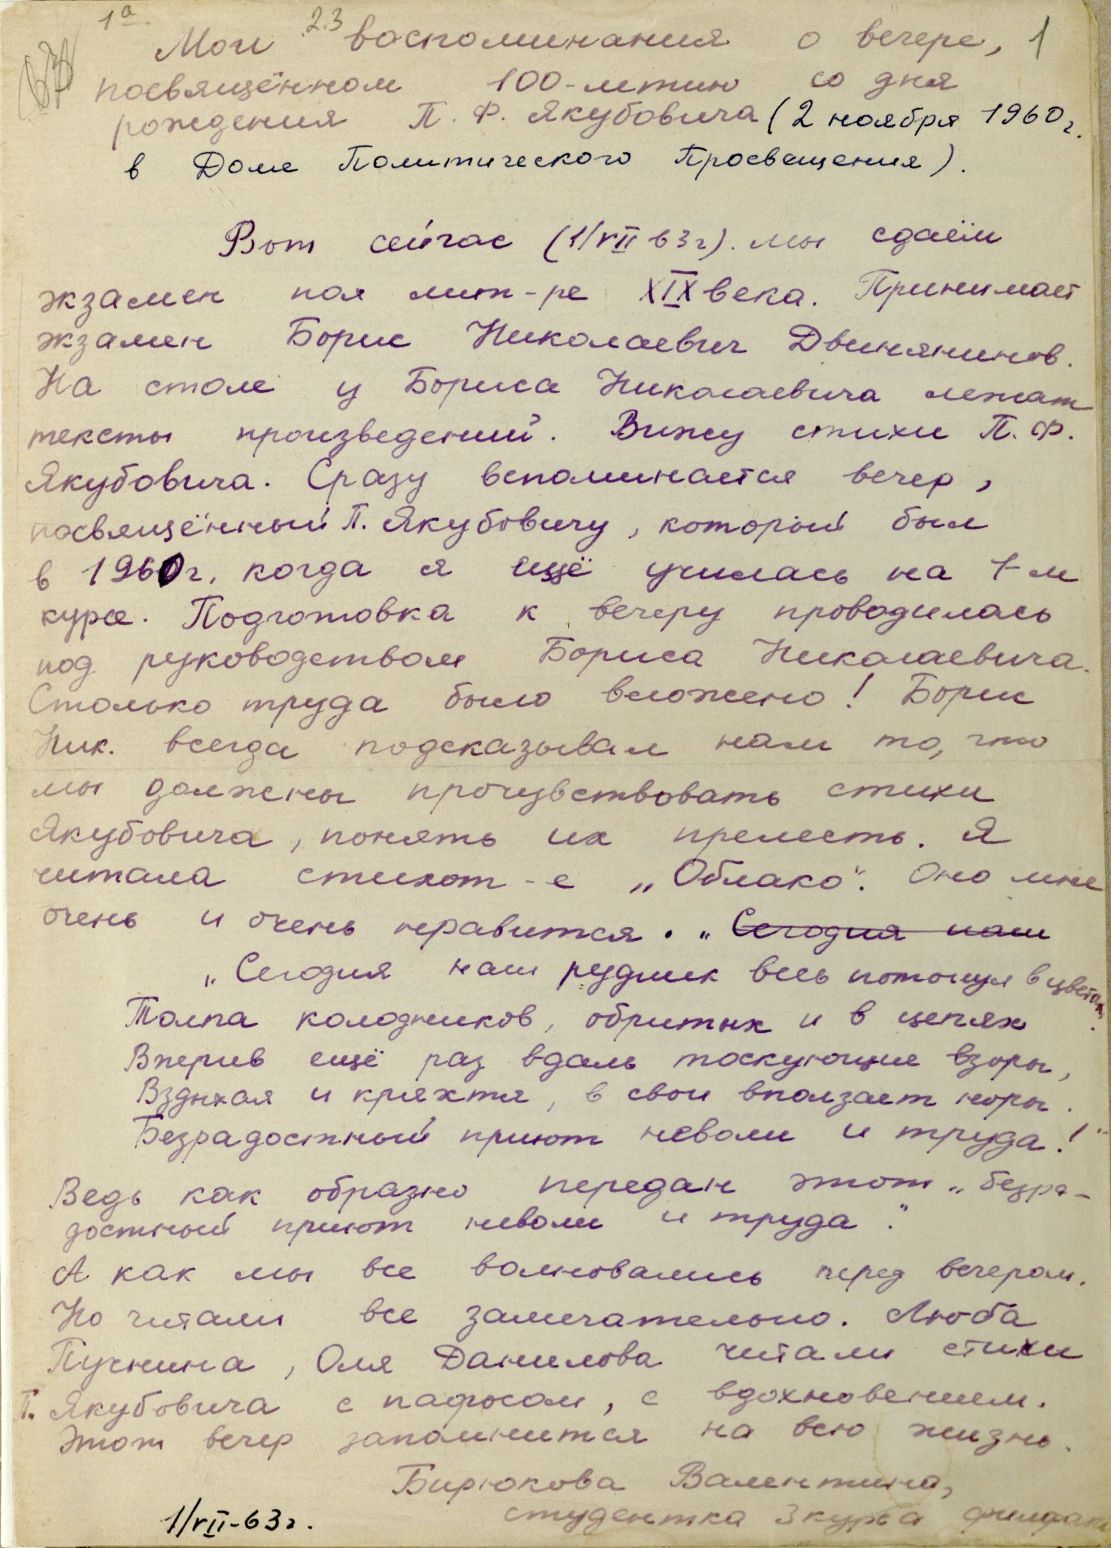 1а 2.3
Мои воспоминания о вечере, 1
посвящённом 100-летию со дня
рождения П. Ф. Якубовича (2 ноября 1960г.
в Доме Политического Просвещения).
Вот сейчас (1/VII 63г). мы сдаём
экзамен поя лит-ре XIX века. Принимает
экзамен Борис Николаевич Двинянинов.
На столе у Бориса Николаевича лежат
тексты произведений. Вижу стихи П. Ф.
Якубовича. Сразу вспоминается вечер,
посвящённый П. Якубовичу, который был
в 1960г, когда я ещё училась на 1-м
курсе. Подготовка к вечеру проводилась
под руководством Бориса Николаевича.
Столько труда было вложено! Борис
Ник. всегда подсказывал нам то, что
мы должны прочувствовать стихи
Якубовича, понять их прелесть. Я
читала стихот-е „Облако". Оно мне
очень и очень нравится. „Сегодня наш
„Сегодня наш рудник весь потонул в цветах.
Толпа колодников, обритых и в цепях
Вперив ещё раз вдаль тоскующие взоры,
Вздыхая и кряхтя, в свои вползает норы.
Безрадостный приют неволи и труда!"
Ведь как образно передан этот „безра-
достный приют неволи и труда".
А как мы все волновались перед вечером.
Но читали все замечательно. Люба
Пучнина, Оля Данилова читали стихи
П. Якубовича с пафосом, с вдохновением.
Этот вечер запомнится на всю жизнь.
Бирюкова Валентина,
студентка 3 курса филфака
1/VII-63г.